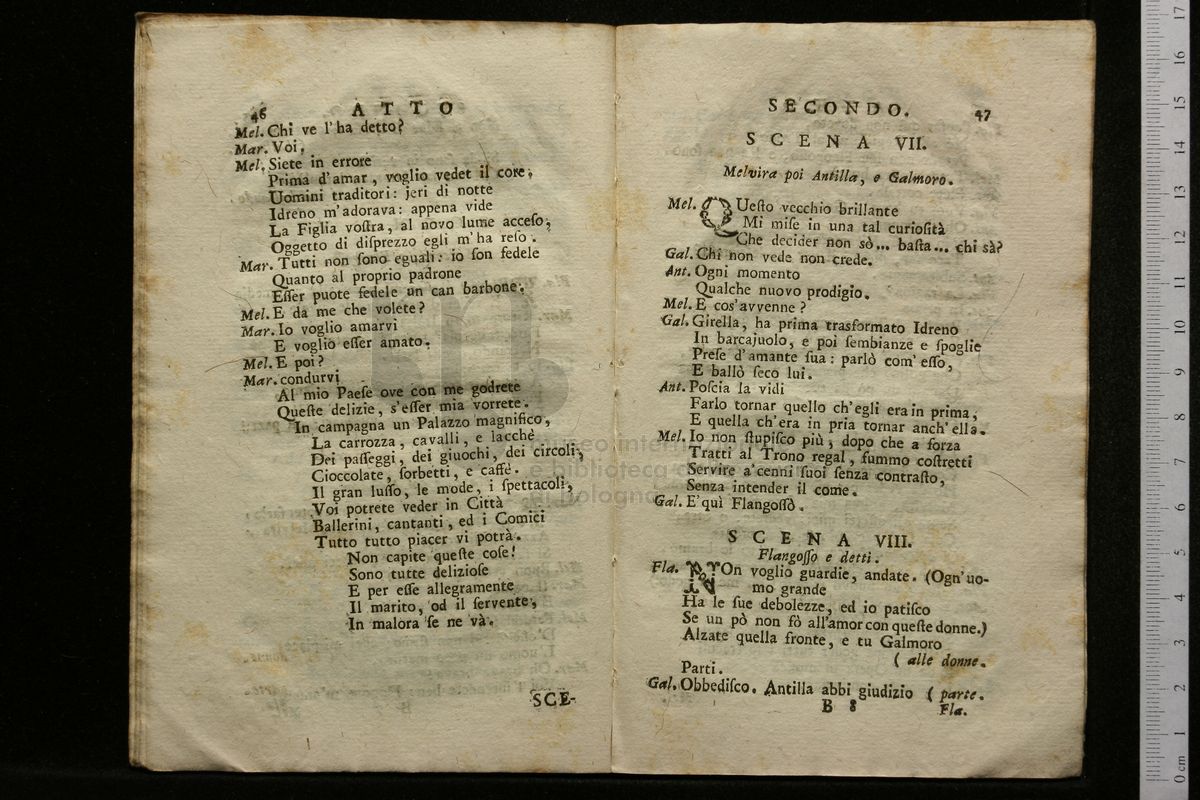 46 ATTO
Mel. Chi ve l'ha detto?
Mar. Voi.
Mel. Siete in errore
Prima d'amar, voglio vedet il core,
Uomini traditori: jeri di notte
Idreno m'adorava: appena vide
La Figlia voſtra, al novo lume acceſo,
Oggetto di diſprezzo egli m'ha reſo.
Mar. Tutti non ſono eguali: io ſon fedele
Quanto al proprio padrone
Eſſer puote fedele un can barbone.
Mel. E da me che volete?
Mar. Io voglio amarvi
E voglio eſſer amato.
Mel. E poi?
Mar. condurvi
Al mio Paeſe ove con me godrete
Queſte delizie, s'eſſer mia vorrete.
In campagna un Palazzo magnifico,
La carrozza, cavalli, e lacchè
Dei paſſeggi, dei giuochi, dei circoli,
Cioccolate, ſorbetti, e caffè.
Il gran luſſo, le mode, i ſpettacoli,
Voi potrete veder in Città
Ballerini, cantanti, ed i Comici
Tutto tutto piacer vi potrà.
Non capite queſte coſe!
Sono tutte delizioſe
E per eſſe allegramente
Il marito, od il ſervente,
In malora ſe ne và.
SCE-
SECONDO. 47
SCENA VII.
Melvira poi Antilla, e Galmoro.
Mel. QUeſto vecchio brillante
Mi miſe in una tal curioſità
Che decider non sò... baſta... chi sà?
Gal. Chi non vede non crede.
Ant. Ogni momento
Qualche nuovo prodigio.
Mel. E cos'avvenne?
Gal. Girella, ha prima trasformato Idreno
In barcajuolo, e poi ſembianze e ſpoglie
Preſe d'amante ſua: parlò com'eſſo,
E ballò ſeco lui.
Ant. Poſcia la vidi
Farlo tornar quello ch'egli era in prima,
E quella ch'era in pria tornar anch'ella.
Mel. Io non ſtupiſco più, dopo che a forza
Tratti al Trono regal, fummo coſtretti
Servire a'cenni ſuoi ſenza contraſto,
Senza intender il come.
Gal. E'quì Flangoſſò.
SCENA VIII.
Flangoſſo e detti.
Fla. NOn voglio guardie, andate. (Ogn'uo-
mo grande
Ha le ſue debolezze, ed io patiſco
Se un pò non fò all'amor con queſte donne.)
Alzate quella fronte, e tu Galmoro
( alle donne.
Parti.
Gal. Obbediſco. Antilla abbi giudizio ( parte.
B 8 Fla.